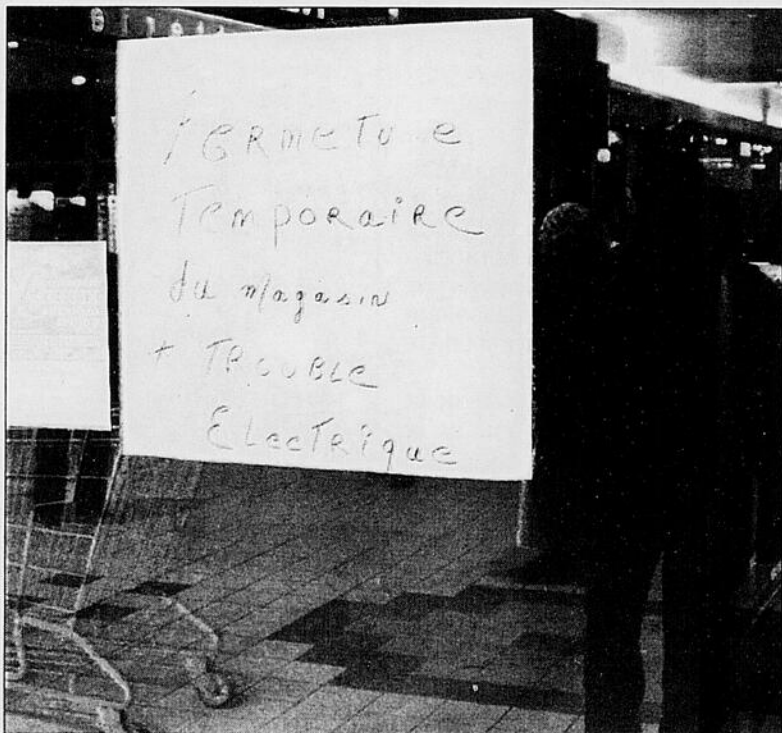 FERMETURE
TEMPORAIRE
du magasin
+ TROUBLE
ELECTRIQUE